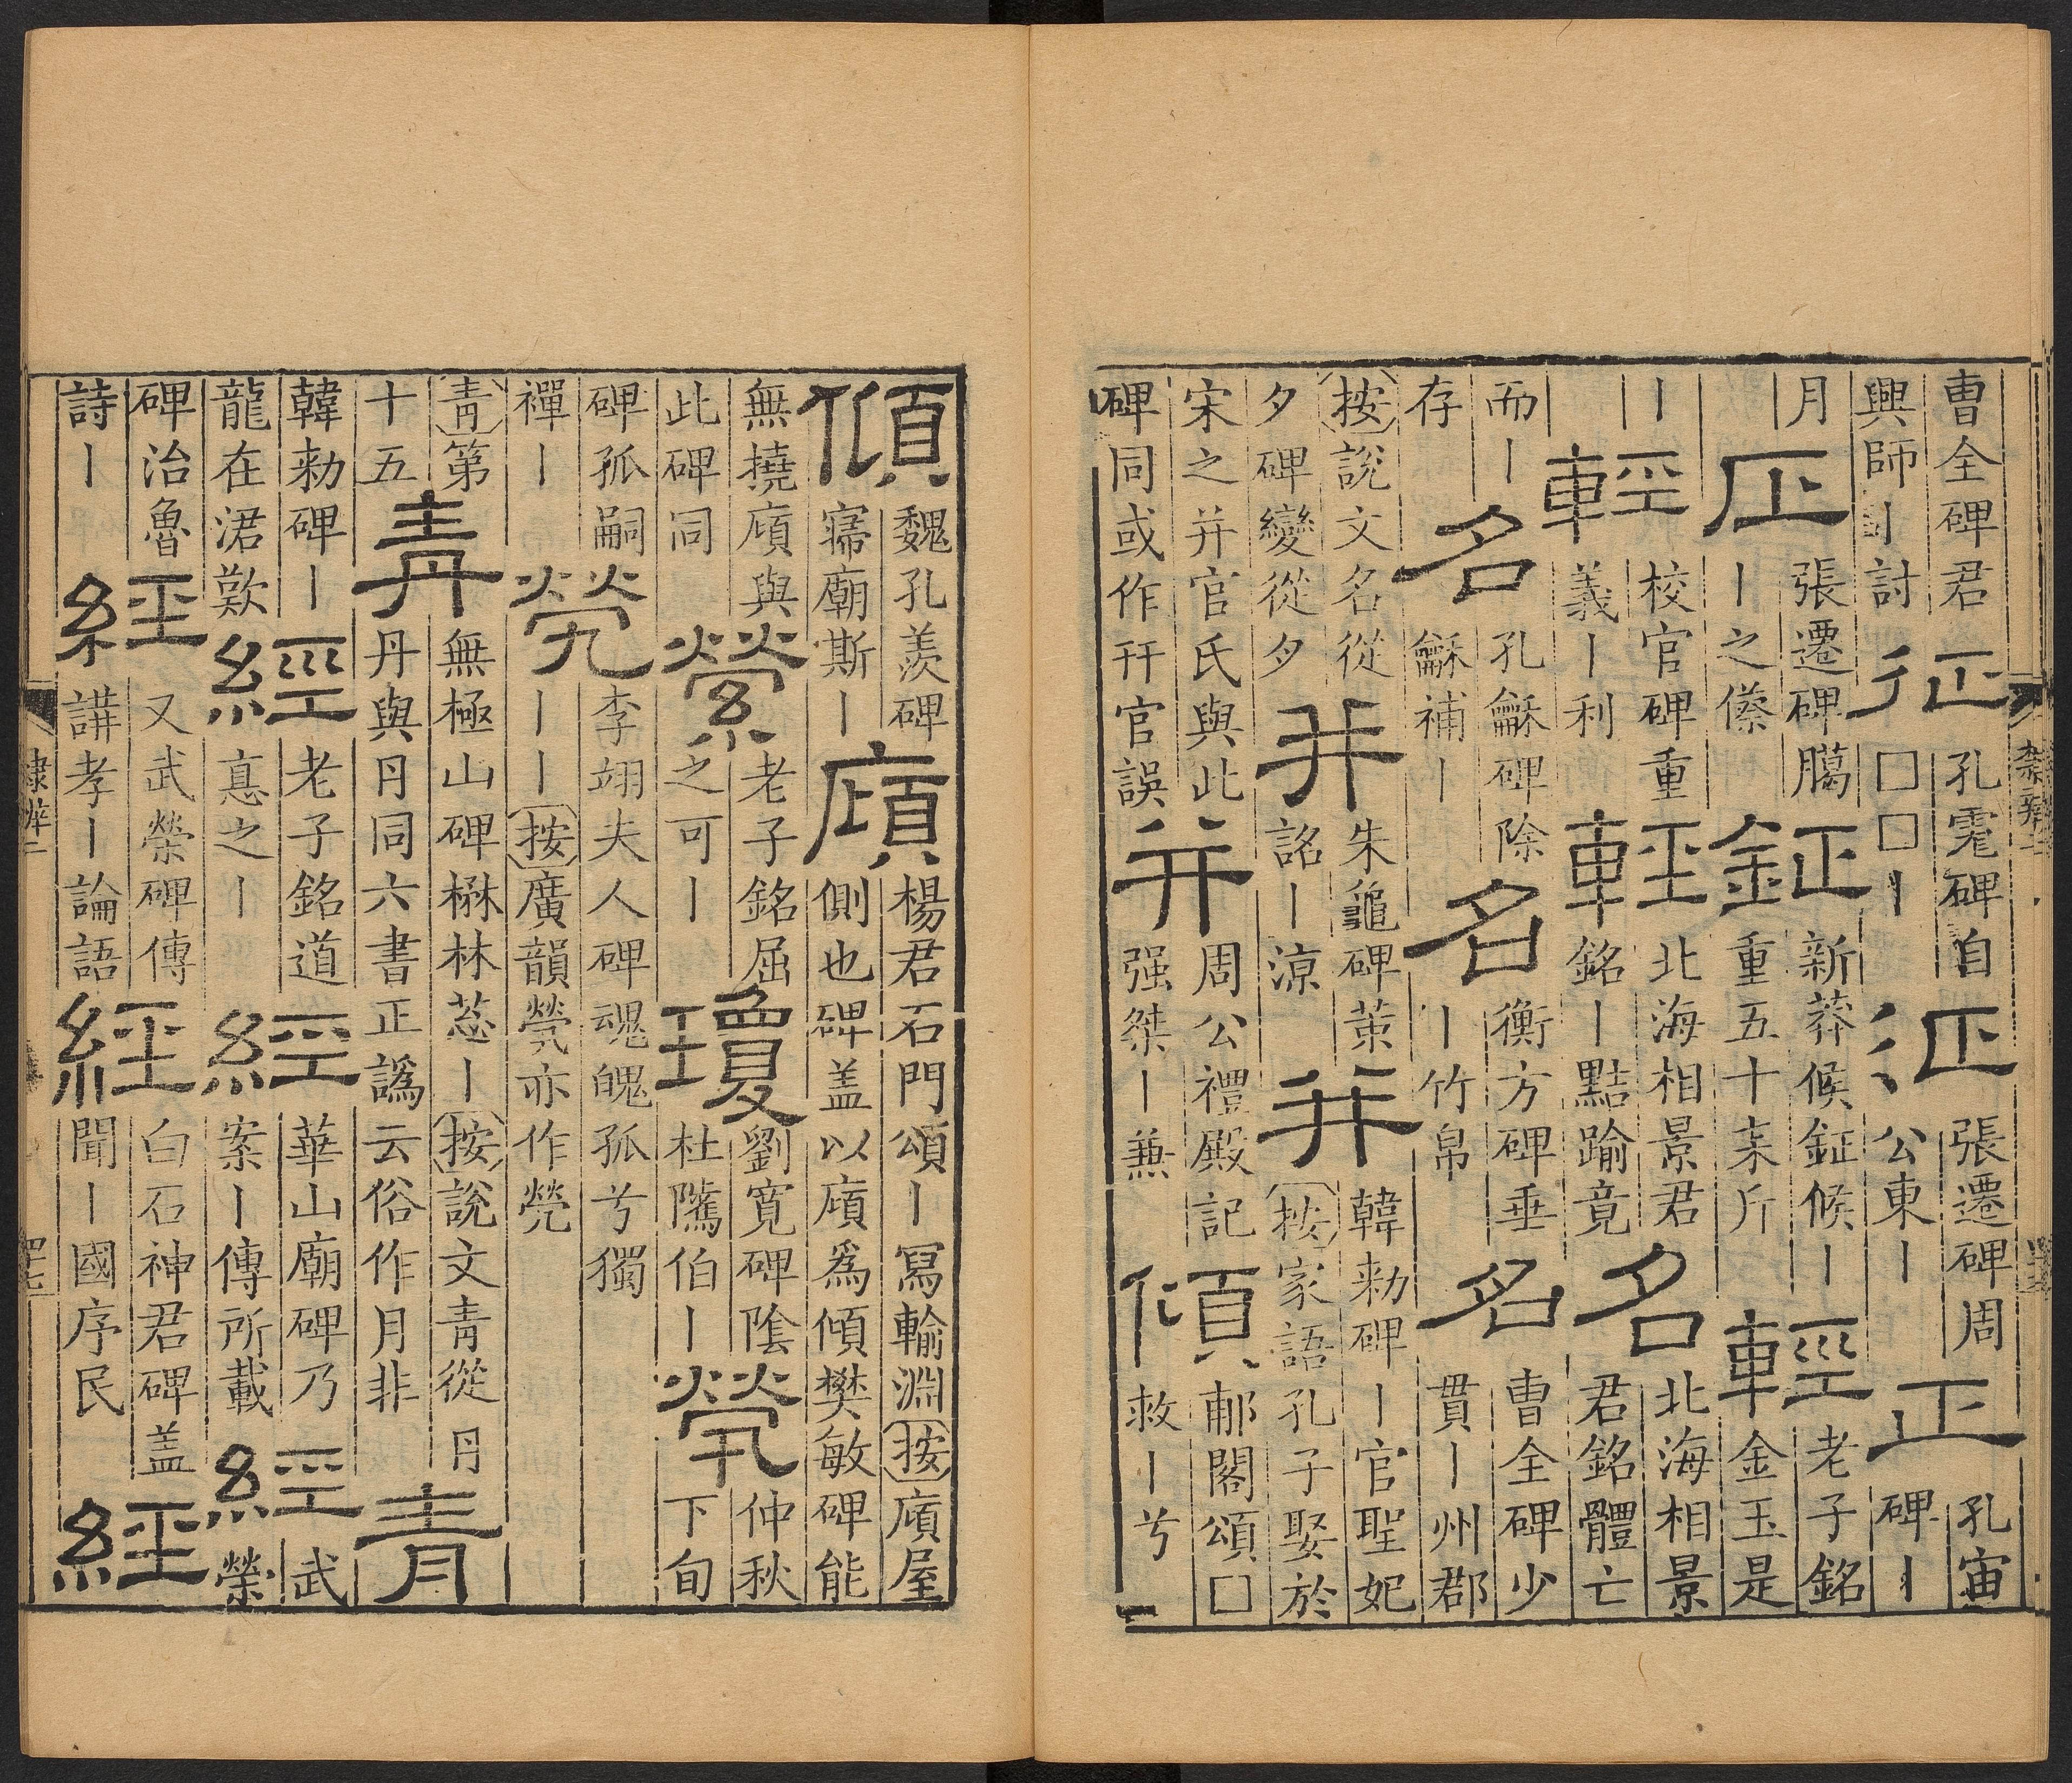 曹全碑君
興師丨討
征
孔霓碑自
□□丨
征
張遷碑周
公東丨
正
孔宙
碑丨
月
正
張遷碑臈
丨之傺
鉦
新莽候鉦候丨
重五十桼斤
輕
老子銘
金玉是
丨
輕
校官碑重
義丨利
輕
北海相景君
銘丨黠踰竟
名
北海相景
君銘體亡
而丨
存
名
孔龢碑除
龢補丨
名
衡方碑垂
丨竹帛
名
曹全碑少
貫丨州郡
按說文名從
夕碑變從夕
并
朱龜碑策
詺丨涼
并
韓勑碑丨官聖妃
按家語孔子娶於
宋之并官氏與此
碑同或作幵官誤
并
周公禮殿記
强桀丨兼
傾
郙閣頌□
救丨兮
傾
魏孔羨碑
寢廟斯丨
廎
楊君石門頌丨寫輸淵按廎屋
側也碑盖以廎爲傾樊敏碑能
無撓廎與
此碑同
縈
老子銘屈
之可丨
瓊
劉寬碑陰
杜隲伯丨
煢
仲秋
下旬
碑孤嗣
禪丨
焭
李翊夫人碑魂魄孤兮獨
丨丨按廣韻煢亦作焭
青第
十五
青
無極山碑楙林蔥丨按說文青從丹
丹與丹同六書正譌云俗作月非
青
韓勑碑丨
龍在涒歎
經
老子銘道
悳之丨
經
華山廟碑乃
案丨傳所載
經
武
榮
碑治魯
詩丨
經
又武榮碑傳
講孝丨論語
經
白石神君碑盖
聞丨國序民
經
隸辨二
四十七